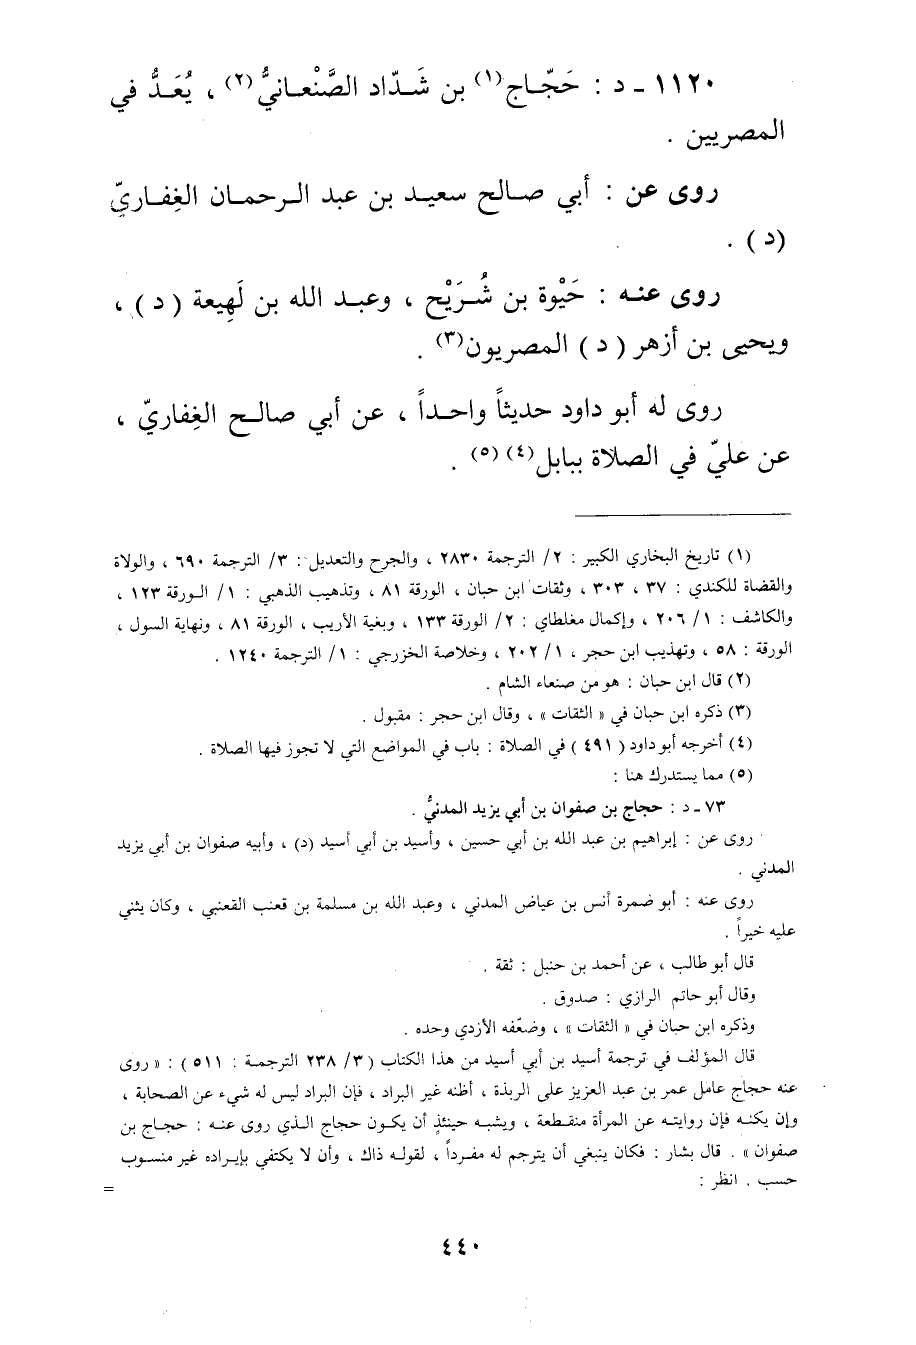 ١١٢٠ ـ د : حَجّـاج(١) بن شَـدّاد الصَّنْعـانيُّ(٢) ، يُعَـدُّ في
المصريين .
روى عن : أبي صـالح سعيـد بن عبد الـرحمـان الغِفـاريّ
(د) .
روى عنـه : حَيْوة بن شُـرَيْح ، وعبـد الله بن لَهِيعة ( د ) ،
ويحيى بن أزهر ( د ) المصريون(٣) .
روى له أبو داود حديثاً واحـداً ، عن أبي صالـح الغِفاريّ ،
عن عليّ في الصلاة ببابل(٤) (٥) .
(١) تاريخ البخاري الكبير : ٢/ الترجمة ٢٨٣٠ ، والجرح والتعديل : ٣/ الترجمة ٦٩٠ ، والولاة
والقضاة للكندي : ٣٧ ، ٣٠٣ ، وثقات ابن حبان ، الورقة ٨١ ، وتذهيب الذهبي : ١/ الـورقة ١٢٣ ،
والكاشف : ١/ ٢٠٦ ، وإكمال مغلطاي : ٢/ الورقة ١٣٣ ، وبغية الأريب ، الورقة ٨١ ، ونهاية السول ،
الورقة : ٥٨ ، وتهذيب ابن حجر ، ١/ ٢٠٢ ، وخلاصة الخزرجي : ١/ الترجمة ١٢٤٠ .
(٢) قال ابن حبان : هو من صنعاء الشام .
(٣) ذكره ابن حبان في « الثقات » ، وقال ابن حجر : مقبول .
(٤) أخرجه أبو داود ( ٤٩١ ) في الصلاة : باب في المواضع التي لا تجوز فيها الصلاة .
(٥) مما يستدرك هنا :
٧٣ ـ د : حجاج بن صفوان بن أبي يزيد المدنيُّ .
روى عن : إبراهيم بن عبد الله بن أبي حسين ، وأسيد بن أبي أسيد (د) ، وأبيه صفوان بن أبي يزيد
المدني .
روى عنه : أبو ضمرة أنس بن عياض المدني ، وعبد الله بن مسلمة بن قعنب القعنبي ، وكان يثني
عليه خيراً .
قال أبو طالب ، عن أحمد بن حنبل : ثقة .
وقال أبو حاتم الرازي : صدوق .
وذكره ابن حبان في « الثقات » ، وضعّفه الأزدي وحده .
قال المؤلف في ترجمة أسيد بن أبي أسيد من هذا الكتاب ( ٣/ ٢٣٨ الترجمـة : ٥١١ ) : « روى
عنه حجاج عامل عمر بن عبد العزيز على الربذة ، أظنه غير البراد ، فإن البراد ليس له شيء عن الصحابة ،
وإن يكنـه فإن روايتـه عن المرأة منقـطعة ، ويشبـه حينئذٍ أن يكـون حجاج الـذي روى عنـه : حجـاج بن
صفوان » . قال بشار : فكان ينبغي أن يترجم له مفـرداً ، لقولـه ذاك ، وأن لا يكتفي بإيـراده غير منسـوب
حسب . انظر :
=
٤٤٠